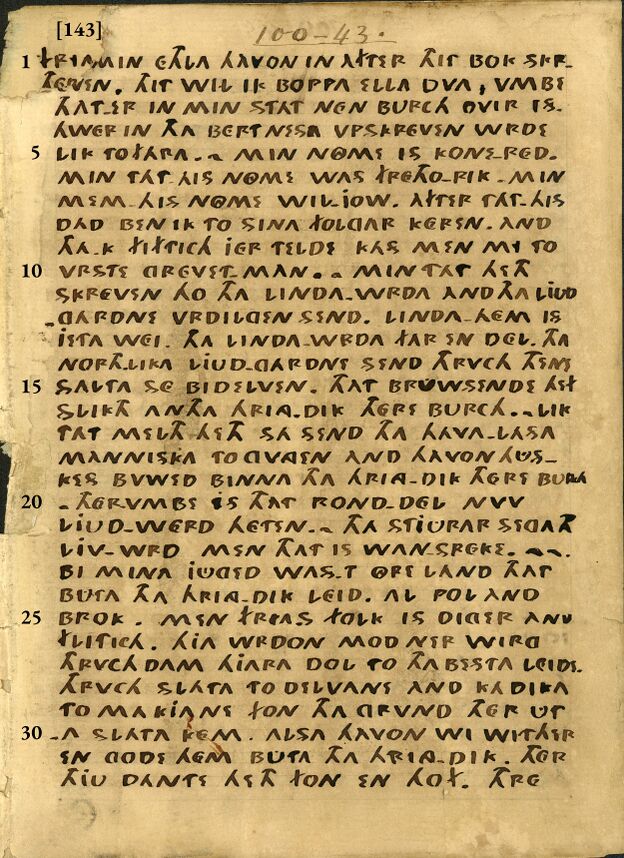 [143]
100-43.
1 FRIA MIN ETHLA HAVON IN AFTER THIT BOK SKR-
EVEN. THIT WIL IK BOPPA ELLA DVA, VMBE
THAT-ER IN MIN STAT NEN BURCH OVIR IS.
HWER IN THA BERTNESA VPSKREVEN WRDE
5 LIK TO FARA.~ MIN NOME IS KONE-RED.
MIN TAT-HIS NOME WAS FRETHO-RIK. MIN
MEM-HIS NOME WILJOW. AFTER TAT-HIS
DAD BEN IK TO SINA FOLGAR KEREN. AND
THA-K FIFTICH JER TELDE KAS MEN MI TO
10 VRSTE GREVET-MAN.~ MIN TAT HETH
SKREVEN HO THA LINDA-WRDA AND THA LIUD
-GARDNE VRDILGEN SEND. LINDA-HEM IS
JETA WEI. THA LINDA-WRDA FAR EN DEL. THA
NORTH-LIKA LIUD-GARDNE SEND THRVCH THENE
15 SALTA SE BIDELVEN. THAT BRUWSENDE HEF
SLIKTH AN THA HRING-DIK THERE BURCH.~ LIK
TAT MELTH HETH SA SEND THA HAVA-LASA
MANNISKA TO GVNGEN AND HAVON HUS-
KES BUWED BINNA THA HRING-DIK THERE BURCH
20 - THERVMBE IS THAT ROND-DEL NVW
LIUD-WERD HETEN.~ THA STIURAR SEGATH
LIV-WRD MEN THAT IS WAN-SPREKE.~~.
BI MINA JUGED WAS-T OTHRE LAND THAT
BUTA THA HRING-DIK LEID. AL POL AND
25 BROK. MEN FRIAS FOLK IS DIGER AND
FLITICH. HIA WRDON MOD NER WIRG
THRVCH DAM HIARA DOL TO THA BESTA LEIDE.
THRVCH SLATA TO DELVANE AND KADIKA
TO MAKIANE FON THA GRVND THER UT
30 -A SLATA KEM. ALSA HAVON WI WITHER
EN GODE HEM BUTA THA HRING-DIK. THER
THIU DANTE HETH FON EN HOF. THRE